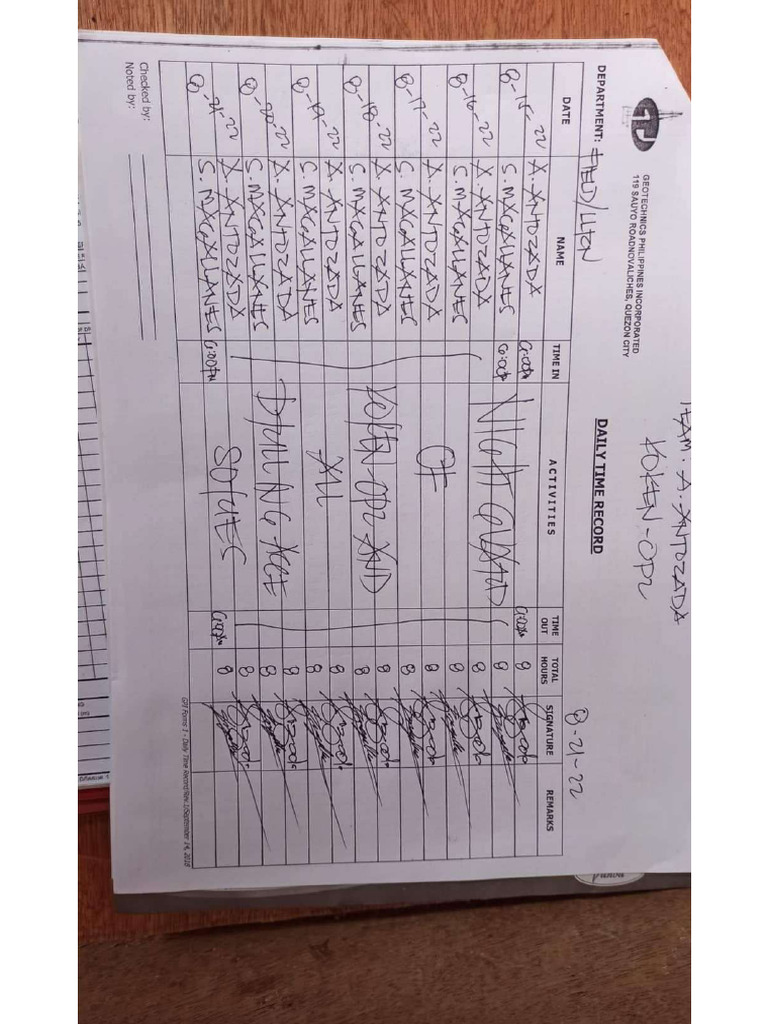 TEAM: A. ANTOZADA
KOKEN-OP2
GEOTECHNICS PHILIPPINES INCORPORATED
119 SAUYO ROADNOVALICHES, QUEZON CITY
DAILY TIME RECORD
DEPARTMENT: FIELD/LUZON
8-21-22
DATE NAME TIME IN ACTIVITIES TIME OUT TOTAL HOURS SIGNATURE REMARKS
8-15-22 A. ANTOZADA 6:00P 6:00A 8
S. MAGALLANES 6:00P NIGHT GUARD 8
8-16-22 A. ANTOZADA 8
S. MAGALLANES 8
8-17-22 A. ANTOZADA OF 8
S. MAGALLANES 8
8-18-22 A. ANTOZADA KOKEN-OP2 AND 8
S. MAGALLANES 8
8-19-22 A. ANTOZADA ALL 8
S. MAGALLANES 8
8-20-22 A. ANTOZADA DRILLING ACCE 8
S. MAGALLANES 8
8-21-22 A. ANTOZADA SORIES 8
S. MAGALLANES 6:00P 6:00A 8
GPI Forms 1 - Daily Time Record/Rev.1/September 14, 2018
Checked by:
Noted by: